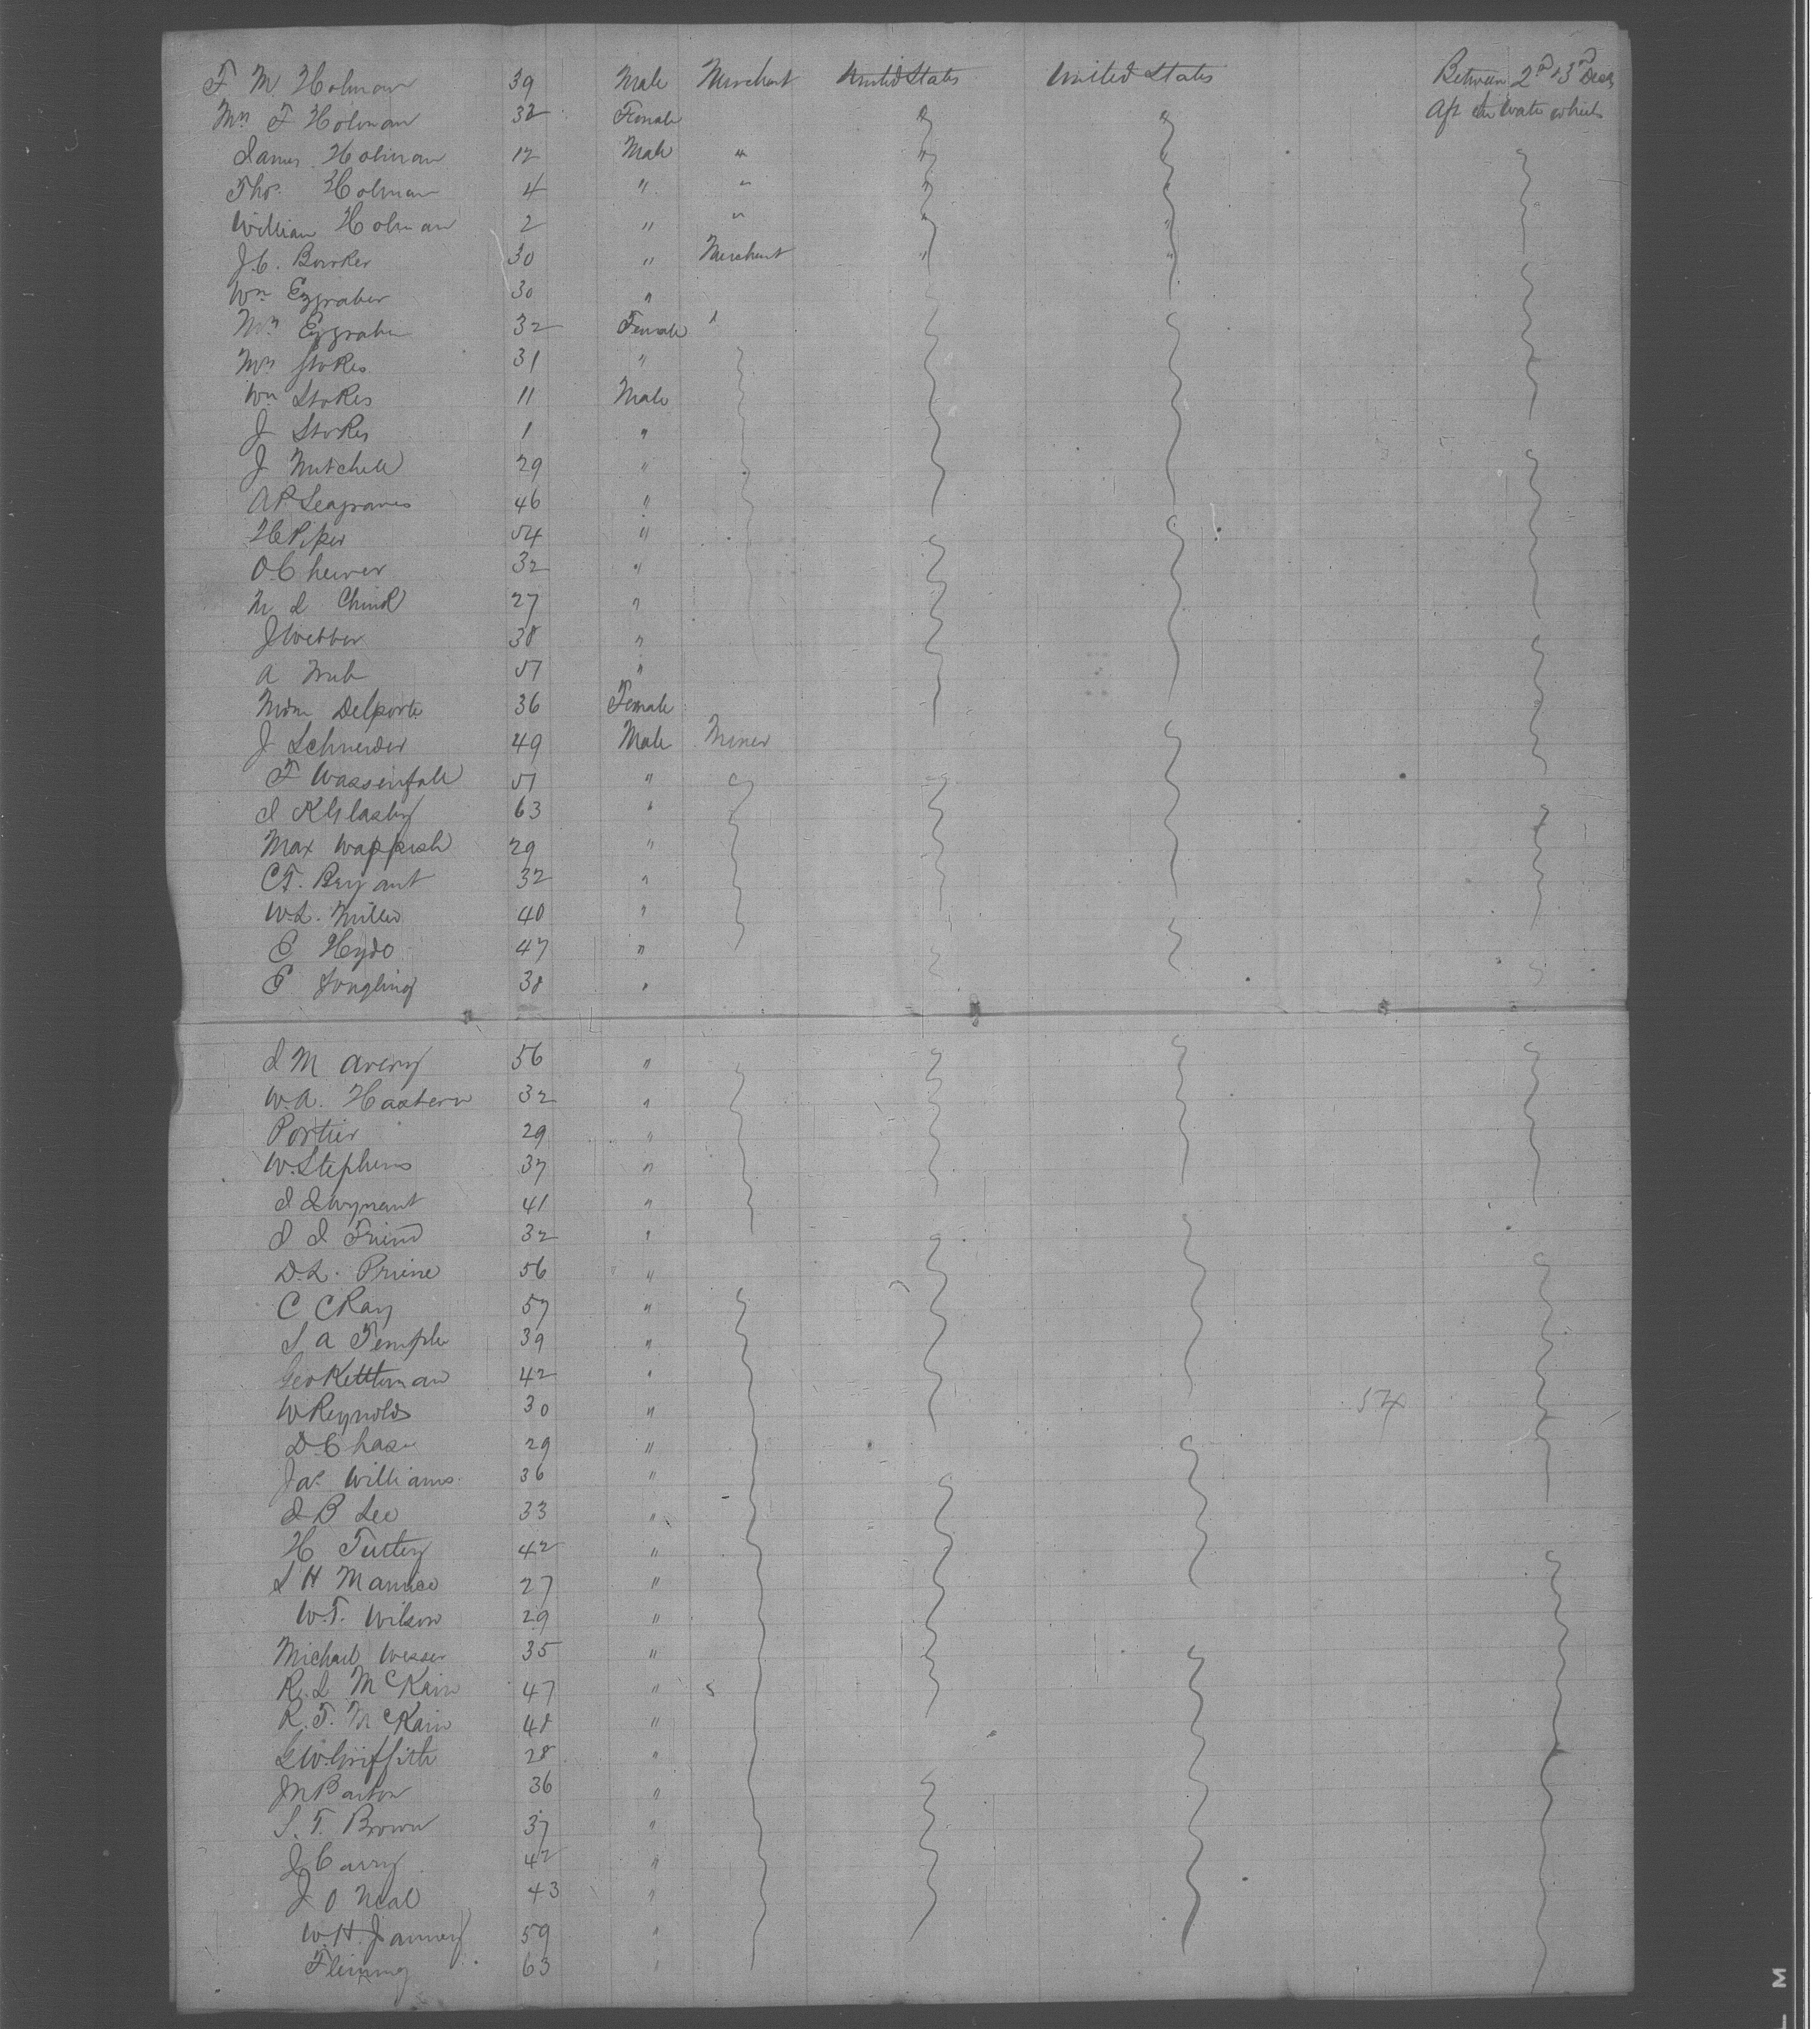 F M. Holman 39 Male Merchant United States United States Between 2nd & 3rd Decks
Mrs F Holman 32 Female " " Aft the Water wheels
James Holman 12 Male " " "
Thos Holman 4 " " " "
William Holman 2 " " " "
J.C. Bowker 30 " Merchant " "
Wm Ezgraber 30 "
Mrs Ezgraber 32 Female "
Mrs Stokes 31 "
Wm Stokes 11 Male
J Stokes 1 "
J Mitchell 29 "
A P Seagraves 46 "
H Piper 54 "
O Cheever 32 "
27 "
J Webber 38 "
A 51 "
Mdm Delporte 36 Female
J Schneider 49 Male Miner
F Wassenfall 51 "
63 "
Max Wappish 29 "
C.F. Bryant 32 "
W.L. Miller 40 "
E Hydo 47 "
E 38 "
I M Avery 56 "
W.A. Hastern 32 "
Portier 29 "
W. Stephens 37 "
41 "
32 "
D.L. Prime 56 "
C C Ray 57 "
S A Temple 39 "
Geo Kettleman 42 "
W Reynolds 30 " 54
D Chase 29 "
Jas Williams 36 "
I B Lee 33 "
H Tutey 42 "
27 "
W.T. Wilson 29 "
Michael Wesser 35 "
R. L McKain 47 " s
R. T. McKain 48 "
G W Griffith 28 "
J N Barton 36 "
S. T. Brown 37 "
J Carry 42 "
J O Neal 43 "
W. H. Janney 59 "
Fleming 63 "
M